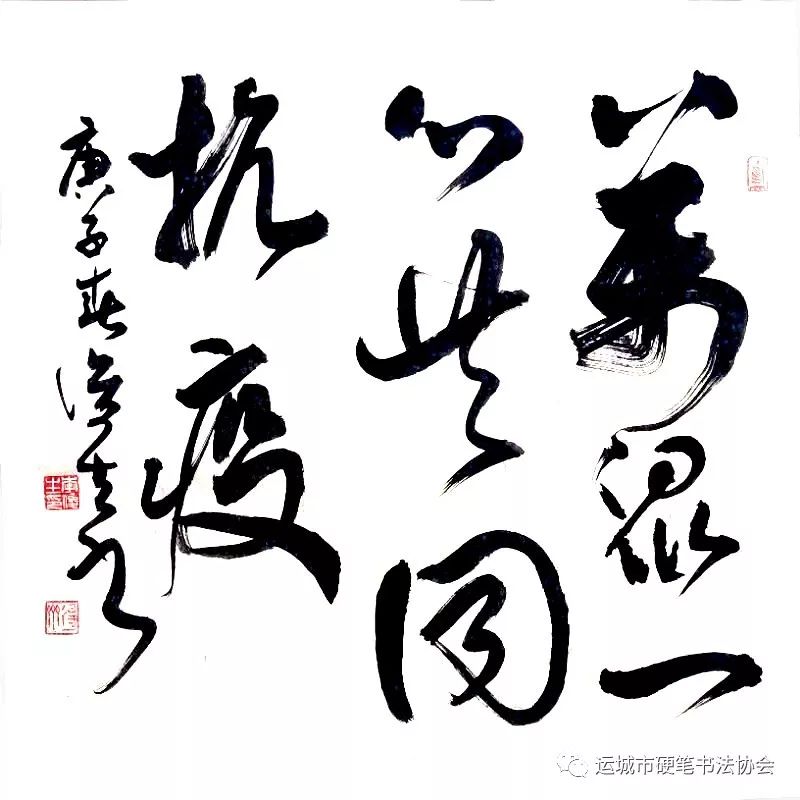 萬眾一
心共同
抗疫
庚子春
运城市硬笔书法协会